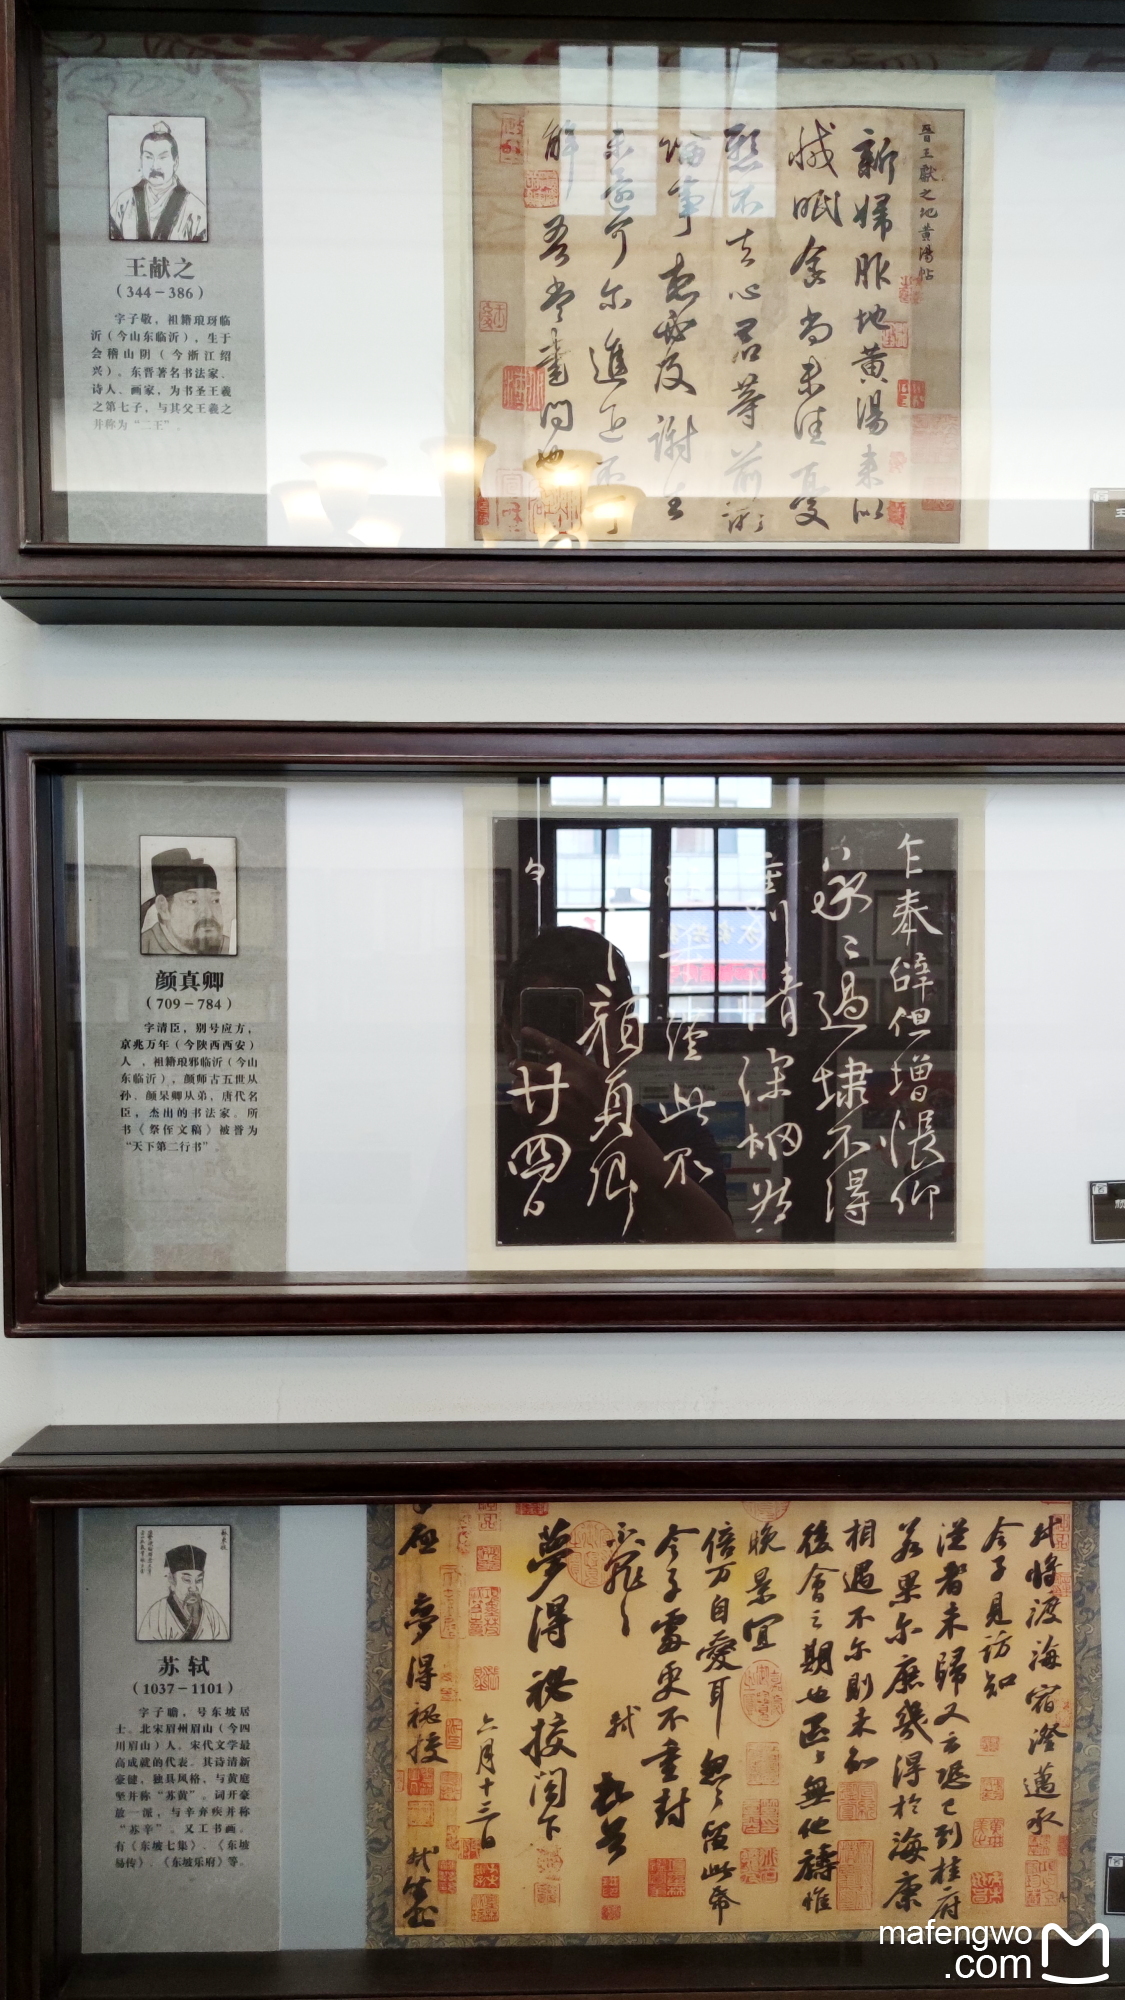 王献之
（344－386）
字子敬，祖籍琅玡临
沂（今山东临沂），生于
会稽山阴（今浙江绍
兴）。东晋著名书法家、
诗人、画家，为书圣王羲
之第七子，与其父王羲之
并称为“二王”。
晋王献之地黄湯帖
新婦服地黄湯来似
減眠食尚未佳憂
懸不去心君等前所
論事想必及謝生
未還可尔進退不可
解吾當書問也
颜真卿
（709－784）
字清臣，别号应方，
京兆万年（今陕西西安）
人，祖籍琅邪临沂（今山
东临沂），颜师古五世从
孙、颜杲卿从弟，唐代名
臣，杰出的书法家。所
书《祭侄文稿》被誉为
“天下第二行书”。
乍奉辞但增悵仰
承已過埭不得
情深惘
謹此不
顔真卿
廿四日
苏轼
（1037－1101）
字子瞻，号东坡居
士。北宋眉州眉山（今四
川眉山）人。宋代文学最
高成就的代表。其诗清新
豪健，独具风格，与黄庭
坚并称“苏黄”。词开豪
放一派，与辛弃疾并称
“苏辛”。又工书画。
有《东坡七集》、《东坡
易传》、《东坡乐府》等。
軾将渡海宿澄邁承
令子見訪知
從者未歸又云恐已到桂府
若果尔庶幾得於海康
相遇不尔則未知
後會之期也区区無他禱惟
晚景宜
倍万自愛耳忽忽留此帋
令子處更不重封
不罪不罪 軾頓首
夢得秘校閣下
六月十三日
手啓 夢得秘校 軾封
mafengwo
.com